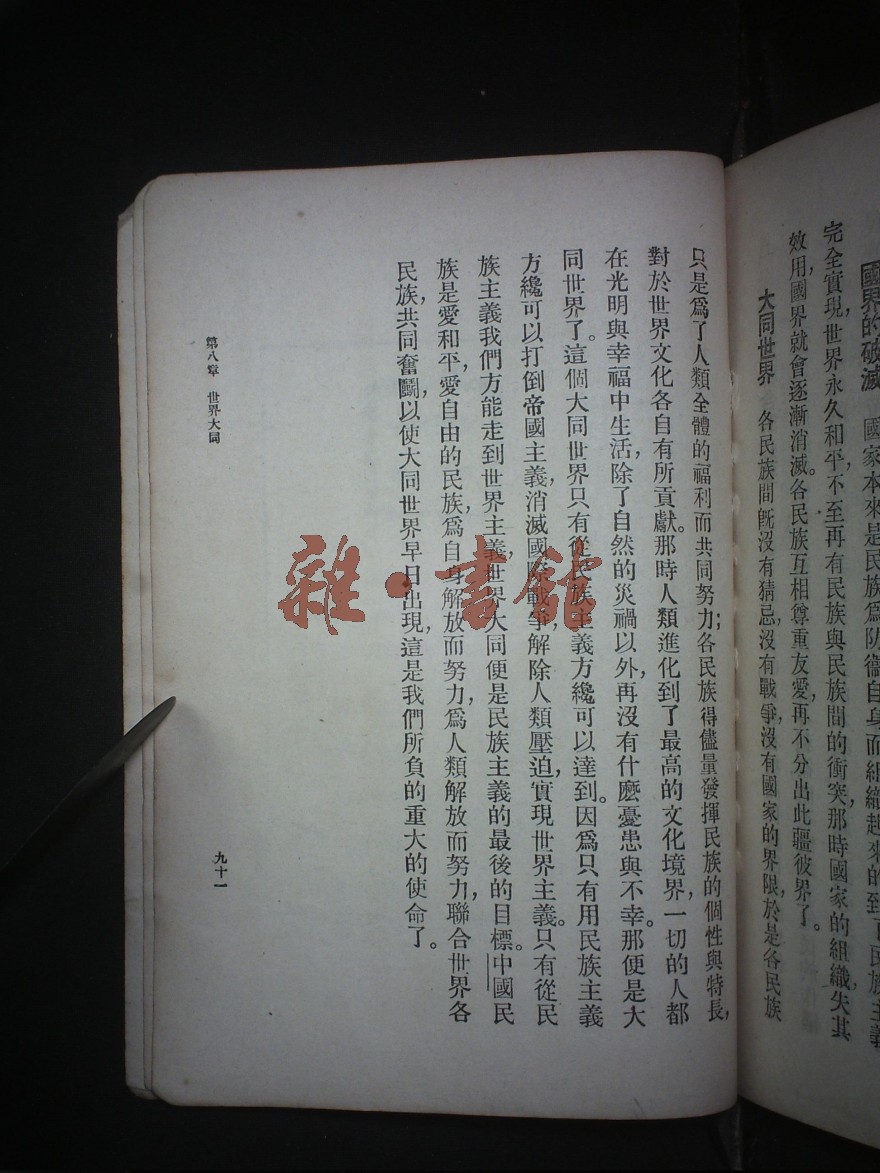 國界的破滅　國家本來是民族為防衞自身而組織起來的到了民族主義
完全實現,世界永久和平,不至再有民族與民族間的衝突,那時國家的組織失其
效用,國界就會逐漸消滅。各民族互相尊重友愛,再不分出此疆彼界了。
大同世界　各民族間既沒有猜忌,沒有戰爭,沒有國家的界限,於是各民族
只是爲了人類全體的福利而共同努力;各民族得儘量發揮民族的個性與特長,
對於世界文化各自有所貢獻。那時人類進化到了最高的文化境界,一切的人都
在光明與幸福中生活,除了自然的災禍以外,再沒有什麽憂患與不幸。那便是大
同世界了。這個大同世界只有從民族主義方纔可以達到。因爲只有用民族主義
方纔可以打倒帝國主義,消滅國際戰爭,解除人類壓迫,實現世界主義。只有從民
族主義我們方能走到世界主義,世界大同便是民族主義的最後的目標。中國民
族是愛和平,愛自由的民族,爲自身解放而努力,爲人類解放而努力,聯合世界各
民族,共同奮鬭,以使大同世界早日出現,這是我們所負的重大的使命了。
第八章　世界大同
九十一
雜·書館